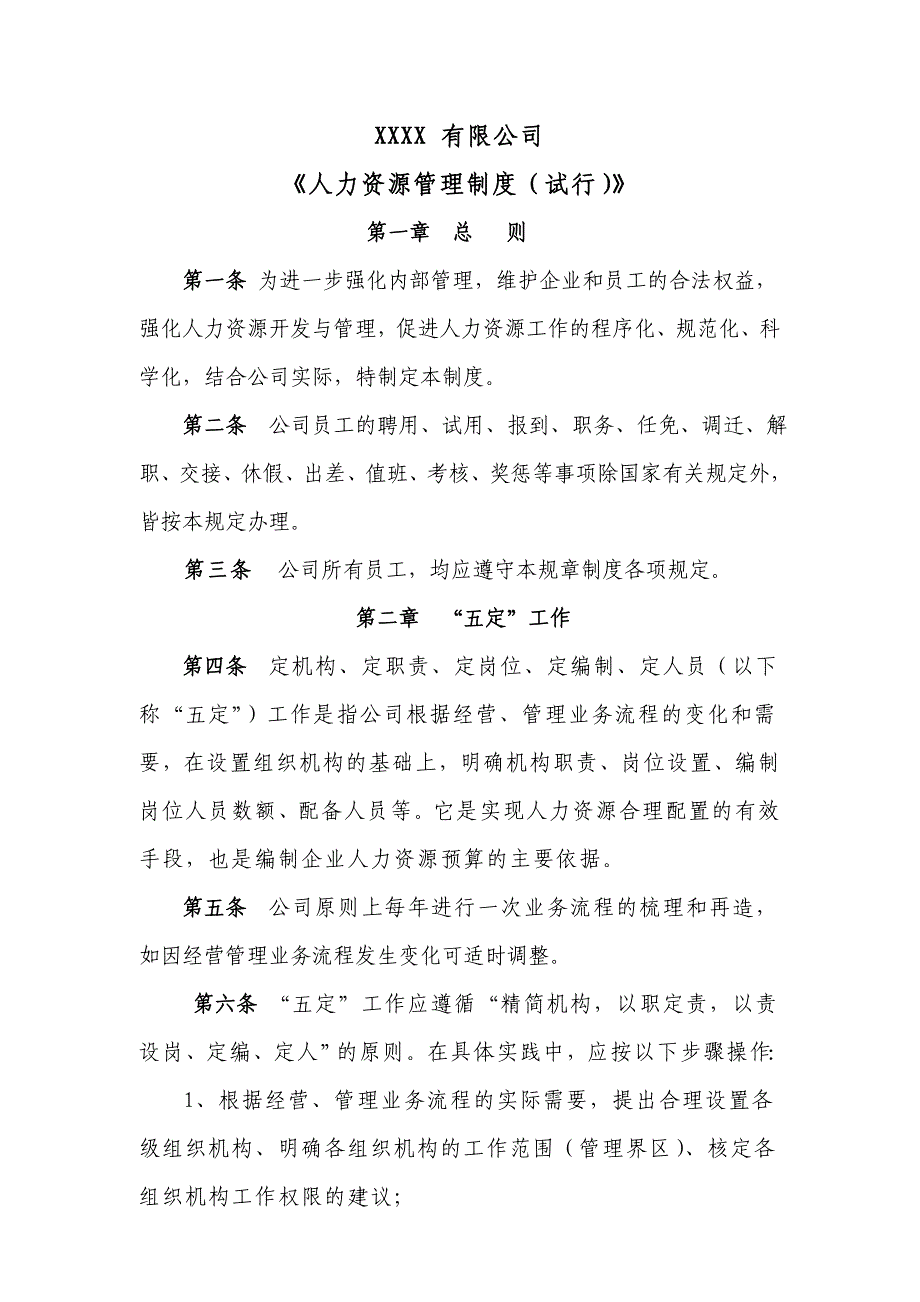 XXXX 有限公司
《人力资源管理制度（试行）》
第一章 总 则
第一条 为进一步强化内部管理，维护企业和员工的合法权益，
强化人力资源开发与管理，促进人力资源工作的程序化、规范化、科
学化，结合公司实际，特制定本制度。
第二条 公司员工的聘用、试用、报到、职务、任免、调迁、解
职、交接、休假、出差、值班、考核、奖惩等事项除国家有关规定外，
皆按本规定办理。
第三条 公司所有员工，均应遵守本规章制度各项规定。
第二章 “五定”工作
第四条 定机构、定职责、定岗位、定编制、定人员（以下
称“五定”）工作是指公司根据经营、管理业务流程的变化和需
要，在设置组织机构的基础上，明确机构职责、岗位设置、编制
岗位人员数额、配备人员等。它是实现人力资源合理配置的有效
手段，也是编制企业人力资源预算的主要依据。
第五条 公司原则上每年进行一次业务流程的梳理和再造，
如因经营管理业务流程发生变化可适时调整。
第六条 “五定”工作应遵循“精简机构，以职定责，以责
设岗、定编、定人”的原则。在具体实践中，应按以下步骤操作：
1、根据经营、管理业务流程的实际需要，提出合理设置各
级组织机构、明确各组织机构的工作范围（管理界区）、核定各
组织机构工作权限的建议；